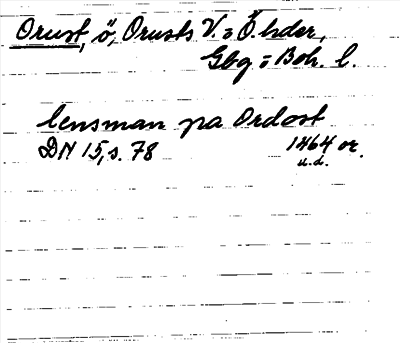 Orust, ö, Orusts V. o Ö. hder,
Gbg o Boh. l.
lensman pa Ordost
DN 15, s. 78 1464 or.
u.d.